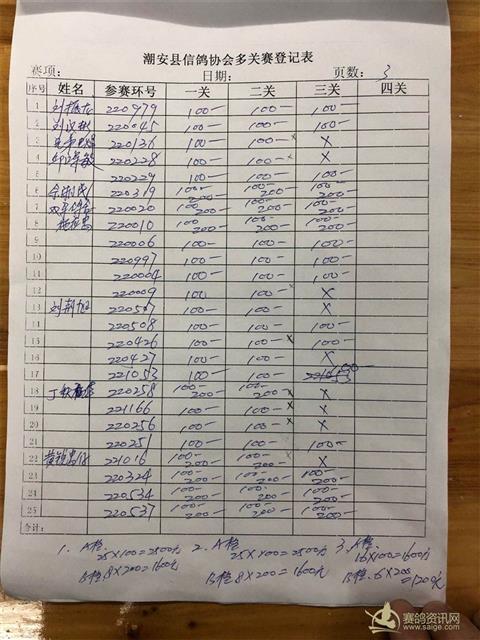 潮安县信鸽协会多关赛登记表
赛项: 日期: 页数: 3
序号 姓名 参赛环号 一关 二关 三关 四关
1 220979 100- 100- 100-
2 220045 100- 100- 100-
3 220136 100- 100- x X
4 220228 100- 100- x X
5 220229 100- 100- 100-
6 220319 100- 200- 100- 200- 100- 200-
7 220020 100- 200- 100- 200- 100- 200-
8 220010 100- 200- 100- 200- 100- 200-
9 220006 100- 100- 100-
10 220997 100- 100- 100-
11 220004 100- 100- 100-
12 220009 100- 100- x X
13 220587 100- 100- X
14 220508 100- 100- 100-
15 220426 100- 100- x 100-
16 220427 100- 100- X
17 221053 100- 100-
18 220258 100- 200- 100- 200- x X
19 221166 100- 100- x X
20 220256 100- 100- x X
21 220251 100- 100- 100-
22 221016 100- 200- 100- 200- x X
23 220324 100- 200- 100- 200- 100- 200-
24 220534 100- 200- 100- 200- 100- 200-
25 220537 100- 200- 100- 200- 100- 200-
合计:
1. A档 2. A档 3. A档
25X100=2500元 25X100=2500元 16X100=1600元
B档 8X200=1600元 B档 8X200=1600元 B档 6X200
=1200元
赛鸽资讯网
www.saige.com